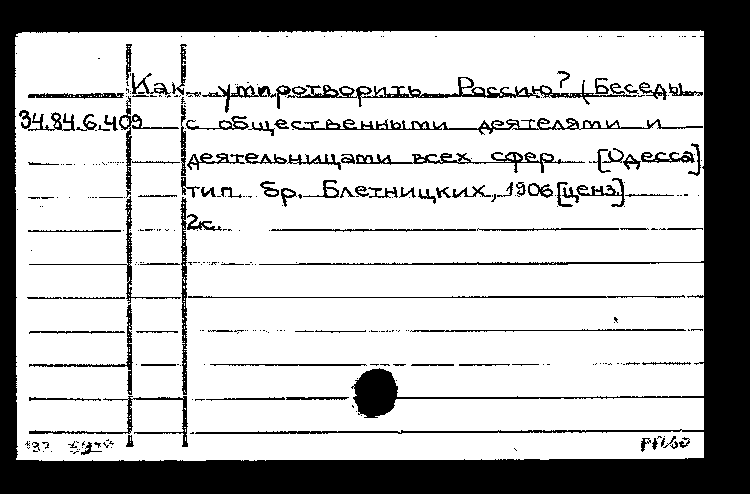 Как умиротворить Россию? (Беседы
34.84.6.409 с общественными деятелями и
деятельницами всех сфер. [Одесса]
тип. бр. Блетницких, 1906 [ценз].
2с.